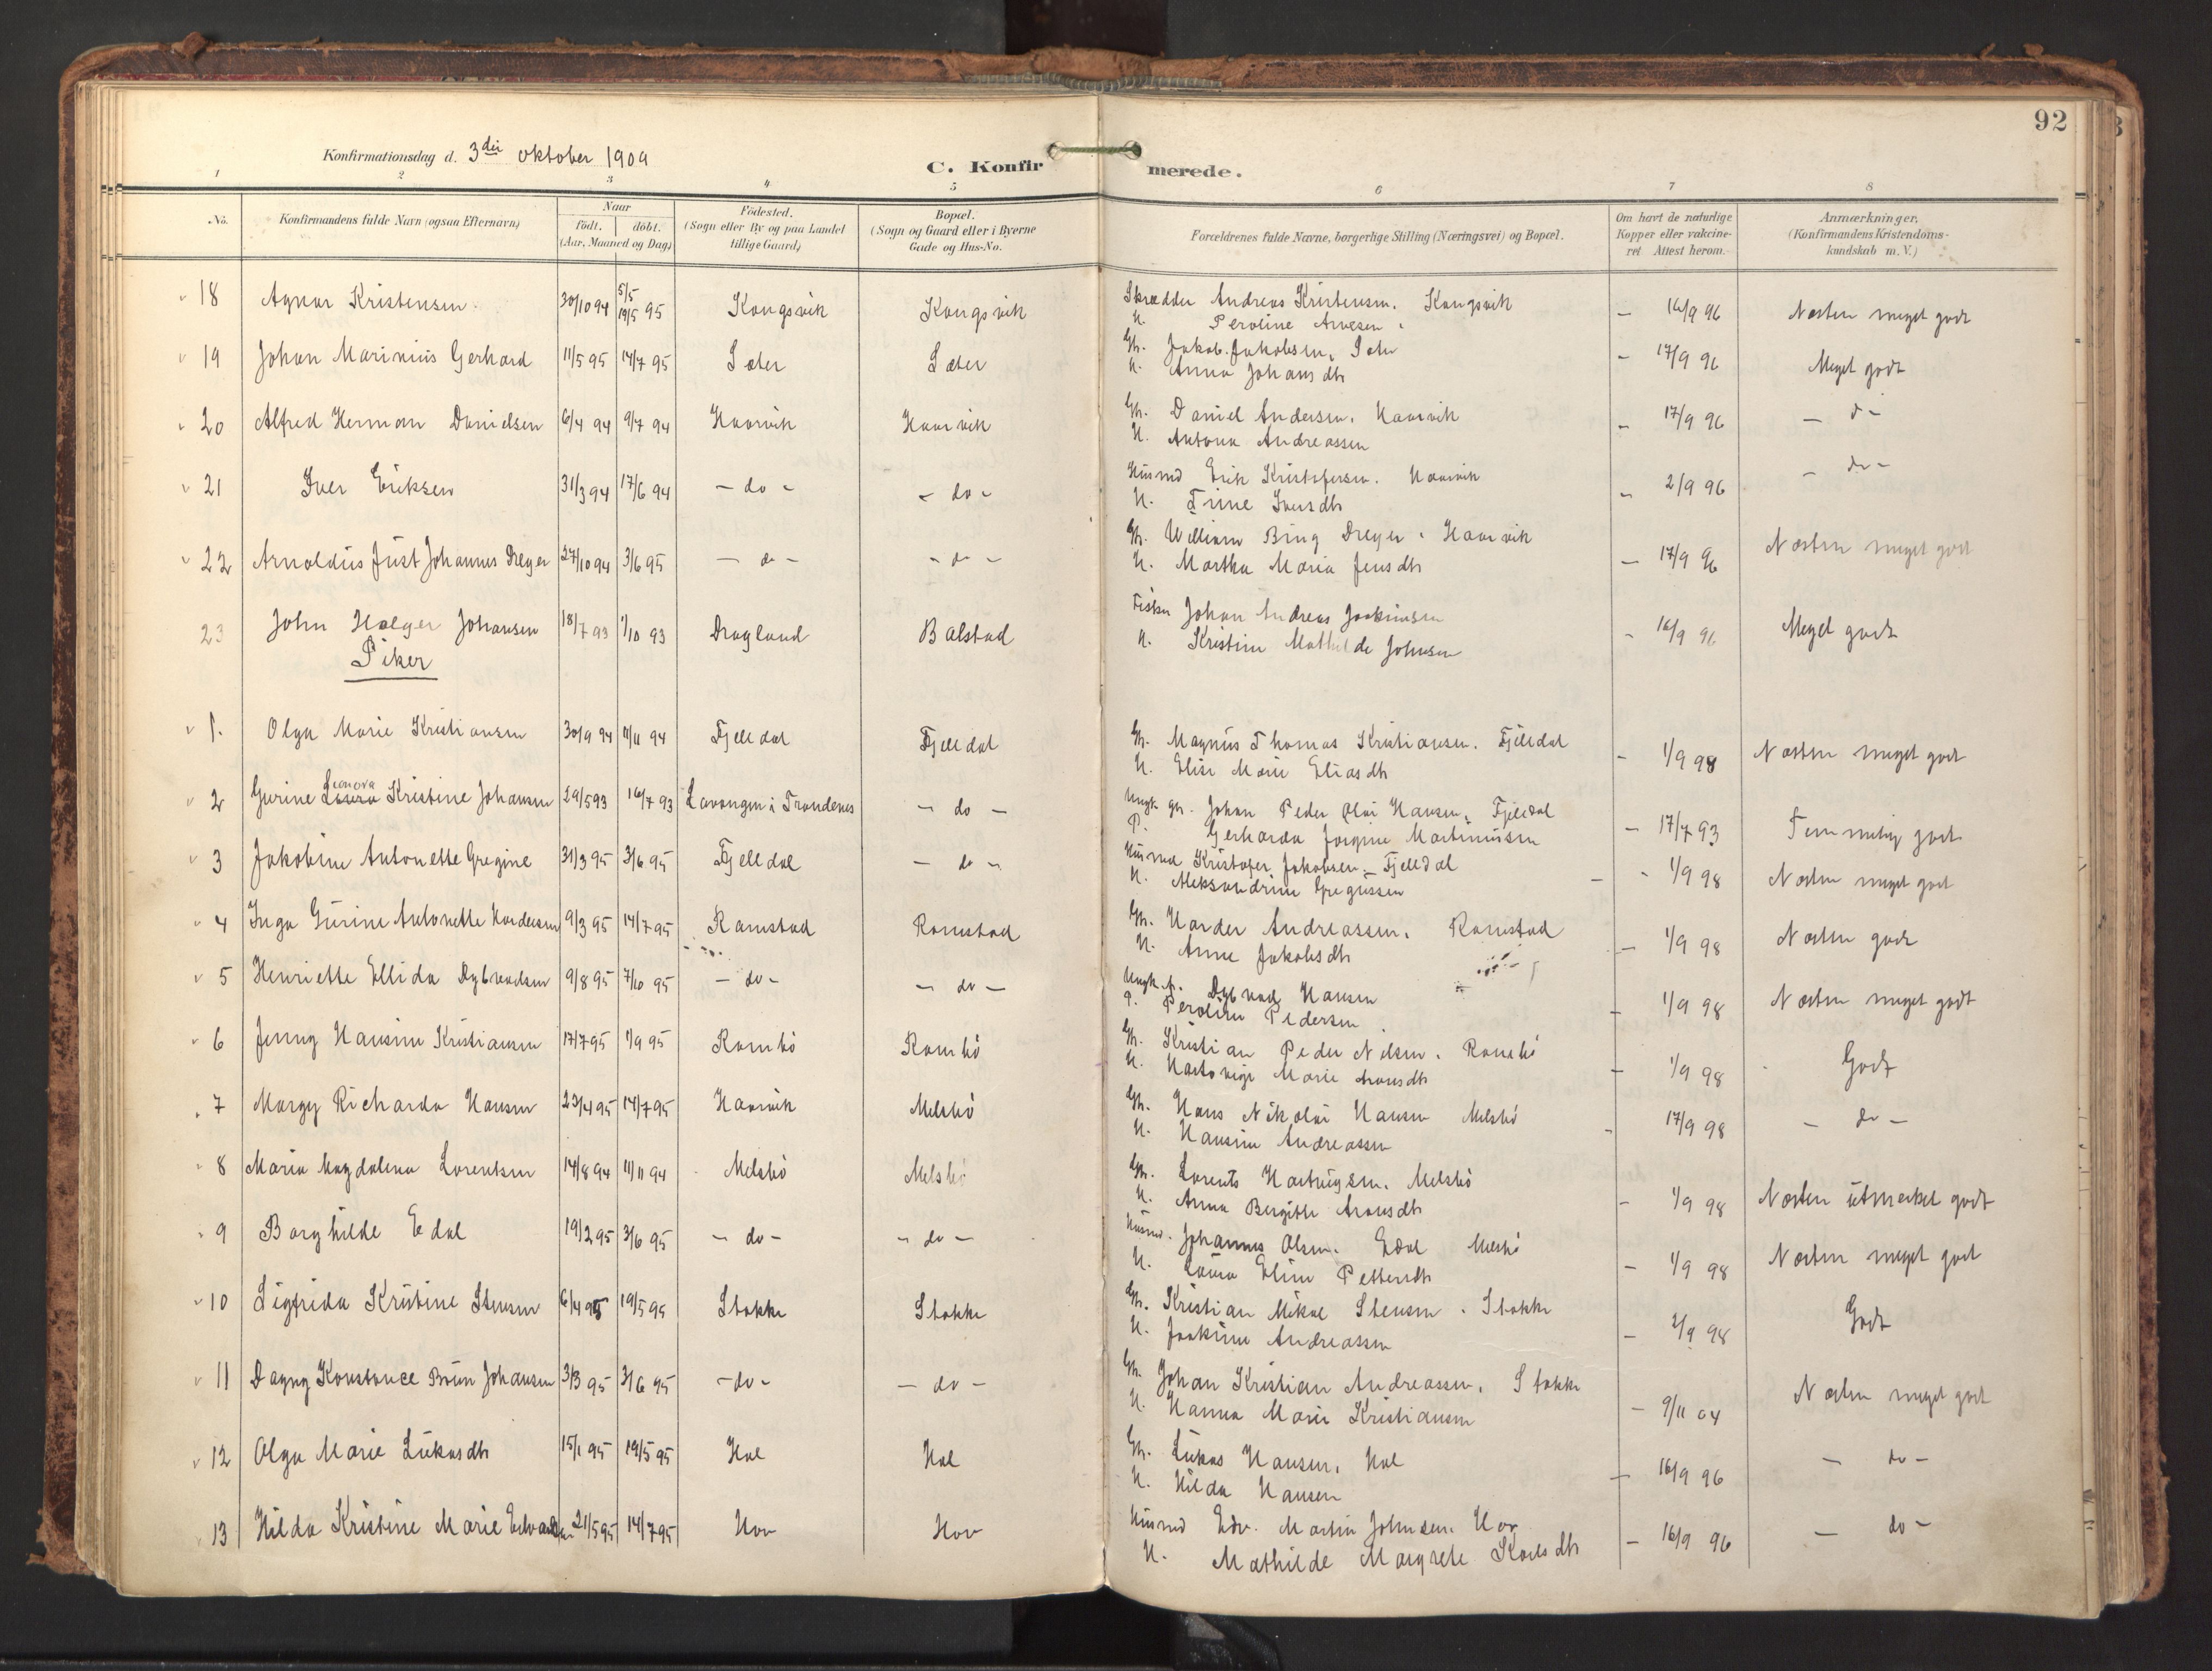 92
Konfirmationsdag d. 3die oktober 1909
C. Konfirmerede.
1 2 3 4 5 6 7 8
No. Konfirmandens fulde Navn (ogsaa Efternavn) Naar født. døbt. (Aar, Maaned og Dag) Fødested. (Sogn eller By og paa Landet tillige Gaard) Bopæl. (Sogn og Gaard eller i Byerne Gade og Hus-No. Forældrenes fulde Navne, borgerlige Stilling (Næringsvei) og Bopæl. Om havt de naturlige Kopper eller vakcineret Attest herom. Anmærkninger. (Konfirmandens Kristendomskundskab m. V.)
18 Agnar Kristensen 30/10 94 5/5 19/5 95 Kongsvik Kongsvik Skrædder Andreas Kristensen. Kongsvik – 16/9 96 Næsten meget godt
H. Peroline Arnesen
19 Johan Marinius Gerhard 11/5 95 14/7 95 Sæter Sæter Gh. Jakob Jakobsen, Sæter – 17/9 96 Meget godt
H. Anna Johansdtr
20 Alfred Herman Danielsen 6/4 94 9/7 94 Haarvik Haarvik Gh. Daniel Andersen. Haarvik – 17/9 96 – d –
H. Antona Andreassen
21 Iver Eriksen 31/3 94 17/6 94 – do – – do – Husmd Erik Kristofersen. Haarvik – 2/9 96 – do –
H. Trine Iversdtr
22 Arnoldus Just Johannes Dreyer 27/10 94 3/6 95 – do – – do – Gh. William Bing Dreyer. Haarvik – 17/9 96 Næsten meget godt
H. Martha Maria Jensdtr
23 John Holger Johansen 18/7 93 1/10 93 Dragland Balstad Fisker Johan Andreas Joakimsen – 16/9 96 Meget godt
H. Kristine Mathilde Johnsen
Piker
1. Olga Marie Kristiansen 30/9 94 11/11 94 Fjelldal Fjelldal Gh. Magnus Thomas Kristiansen. Fjelldal – 1/9 98 Næsten meget godt
H. Elise Marie Eliasdtr
2 Gurine Leonora Kristine Johansen 29/5 93 16/7 93 Lavangen i Trondenes – do – Ungk. gh. Johan Peder Olai Hansen, Fjelldal – 17/7 93 Temmelig godt
P. Gerharda Jorgine Martinussen
3 Jakobine Antonette Gregine 31/3 95 3/6 95 Fjelldal – do – Husmd Kristofer Jakobsen. Fjelldal – 1/9 98 Næsten meget godt
H. Aleksandrine Gregussen
4 Inga Gurine Antonette Hardersen 9/3 95 14/7 95 Ramstad Ramstad Gh. Harder Andreassen. Ramstad – 1/9 98 Næsten godt
H. Anne Jakobsdtr
5 Henriette Ellida Dybvadsen 9/8 95 7/10 95 – do – – do – Ungk. Dybvad Hansen – 1/9 98 Næsten meget godt
P. Peroline Pedersen
6 Jenny Hansine Kristiansen 17/7 95 1/9 95 Rambø Rambø Gh. Kristian Peder Nelsen. Rambø – 1/9 98 Godt
H. Hartvige Marie Aronsdtr
7 Margy Richarda Hansen 23/4 95 14/7 95 Haarvik Melsbø Gh. Hans Nikolai Hansen Melsbø – 17/9 98 – do –
H. Hansine Andreassen
8 Maria Magdalena Lorentsen 14/8 94 11/11 94 Melsbø Melsbø Gh. Lorents Hartvigsen. Melsbø – 1/9 98 Næsten utmerket godt
H. Anna Bergitte Aronsdtr
9 Borghilde Edal 19/2 95 3/6 95 – do – – do – Husmd. Johannes Olsen. Edal Melsbø – 1/9 98 Næsten meget godt
H. Laura Eline Pettersdtr
10 Sigfrida Kristine Stensen 6/4 95 19/5 95 Stokke Stokke Gh. Kristian Mikal Stensen. Stokke – 2/9 98 Godt
H. Joakime Andreassen
11 Dagny Konstance Brun Johansen 3/3 95 3/6 95 – do – – do – Gh. Johan Kristian Andreassen. Stokke – 9/11 04 Næsten meget godt
H. Hanna Marie Kristiansen
12 Olga Marie Lukasdtr 15/1 95 19/5 95 Hol Hol Gh. Lukas Hansen. Hol – 16/9 96 – do –
H. Hilda Hansen
13 Hilda Kristine Marie Edvardsen 21/5 95 14/7 95 Hov Hov Husmd Edv. Martin Johnsen. Hov – 16/9 96 – do –
H. Mathilde Margrete Karlsdtr